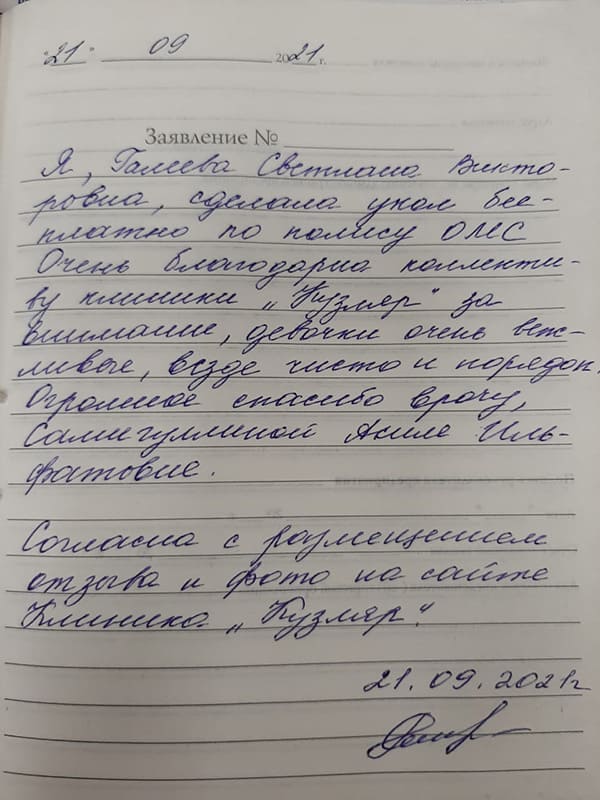 "21" 09 2021 г.
Заявление №
Я, Галеева Светлана Викто-
ровна, сделала укол бес-
платно по полису ОМС
Очень благодарна коллекти-
ву клиники „Кузляр" за
внимание, девочки очень веж-
ливые, везде чисто и порядок.
Огромное спасибо врачу,
Самигуллиной Аниле Иль-
фатовне.
Согласна с размещением
отзыва и фото на сайте
Клиника „Кузляр".
21.09.2021г